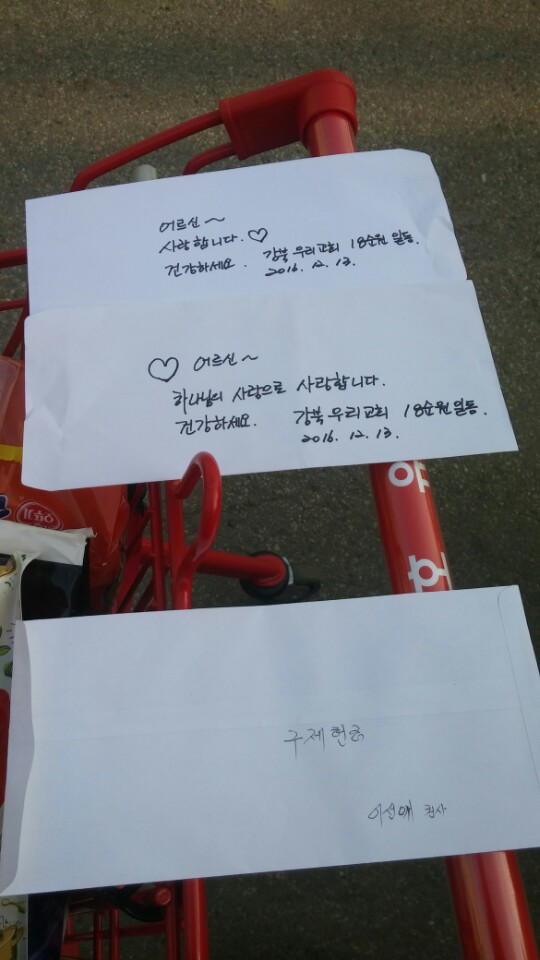 어르신~
사랑합니다. ♡
건강하세요. 강북 우리교회 18순원 일동.
2016. 12. 13.
♡ 어르신~
하나님의 사랑으로 사랑합니다.
건강하세요. 강북 우리교회 18순원 일동.
2016. 12. 13.
구제헌금
이선애 권사